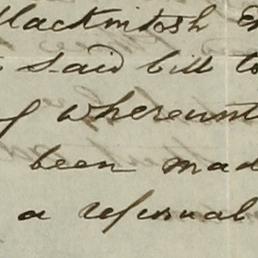 Mackintosh
said bill to
whereunt
been mad
a refusal